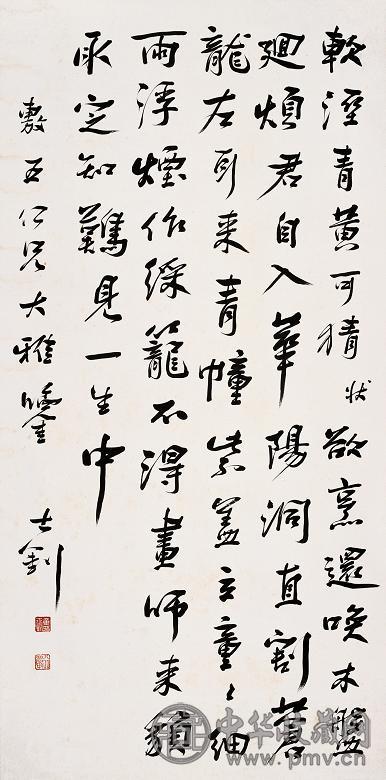 軟溼青黃可猜狀欲烹還喚木盤
廻煩君自入華陽洞直割蒼
龍左耳來青幢紫蓋立童〻細
雨浮煙作綵籠不得畫師來貌
取定知難見一生中
敷五仁兄大雅鑒 士釗
中华收藏网
www.pmv.cn